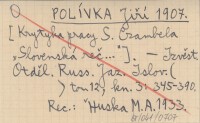 POLÍVKA Jiří 1907.
[Krytyka pracy S. Czambela
Slovenská reč..."]. – Izvěst.
Otděl. Russ. Jaz. Islov. (
) ton 12, kn. 31. 345-390.
Rec.: "Huska M.A. 1933.